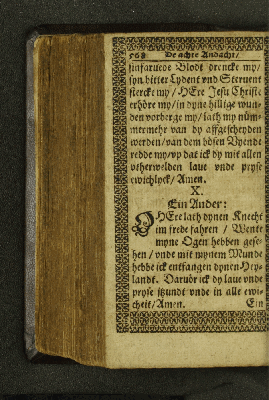 568 De achte Andacht/
sinfarvede Blodt drencke my/
syn bitter Lydent vnd Stervent
stercke my/ HEre Jesu Christe
erhöre my/ in dyne hillige wun-
den vorberge my/ lath my nüm-
mermehr van dy affgescheyden
werden/ van dem bösen Vyende
redde my/ vp dat ick dy mit allen
vtherwelden lave vnde pryse
ewichlyck/ Amen.
X.
Ein Ander:
HEre lath dynen Knecht
im frede fahren / Wente
myne Ogen hebben gese-
hen/ vnde mit mynem Munde
hebbe ick entfangen dynen Hey-
landt. Darvör ick dy lave vnde
pryse itzundt vnde in alle ewi-
cheit/ Amen. Ein